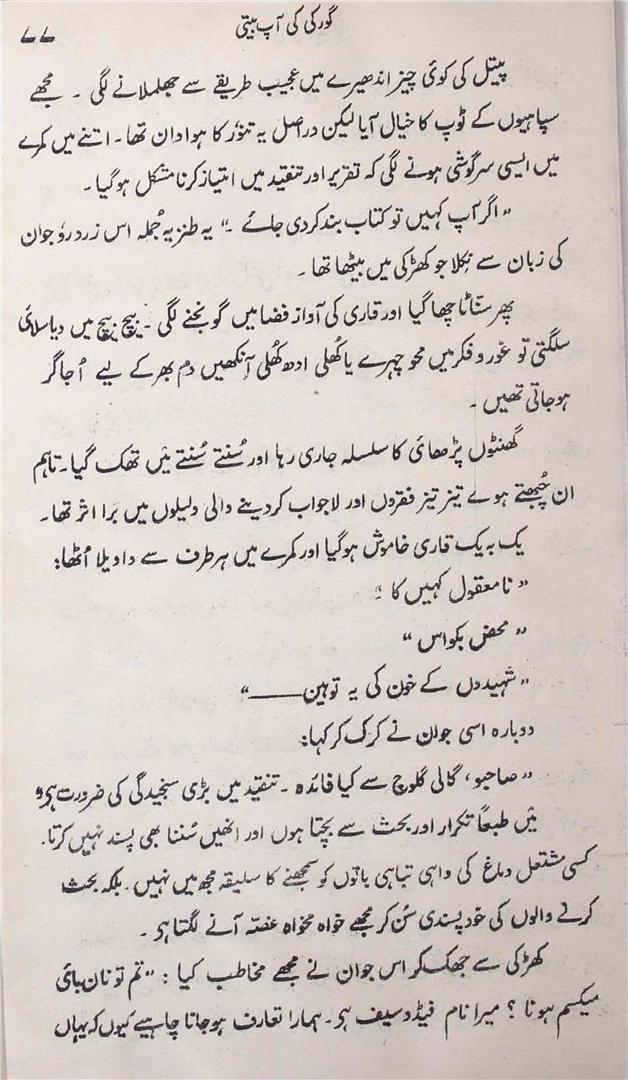 گورکی کی آپ بیتی
۷۷
پیتل کی کوئی چیز اندھیرے میں عجیب طریقے سے جھلملانے لگی ۔ مجھے
سپاہیوں کے ٹوپ کا خیال آیا لیکن دراصل یہ تنّور کا ہوا دان تھا۔ اتنے میں کمرے
میں ایسی سرگوشی ہونے لگی کہ تقریر اور تنقید میں امتیاز کرنا مشکل ہو گیا۔
”اگر آپ کہیں تو کتاب بند کر دی جائے ۔“ یہ طنزیہ جُملہ اس زرد رُو جوان
کی زبان سے نکلا جو کھڑکی میں بیٹھا تھا ۔
پھر سنّاٹا چھا گیا اور قاری کی آواز فضا میں گونجنے لگی ۔ بیچ بیچ میں دیا سلائی
سلگتی تو غور و فکر میں محو چہرے یا کُھلی ادھ کُھلی آنکھیں دم بھر کے لیے اُجاگر
ہو جاتی تھیں ۔
گھنٹوں پڑھائی کا سلسلہ جاری رہا اور سُنتے سُنتے میں تھک گیا۔ تاہم
ان چُبھتے ہوے تیز تیز فقروں اور لاجواب کر دینے والی دلیلوں میں بَرا اثر تھا۔
یک بہ یک قاری خاموش ہو گیا اور کمرے میں ہر طرف سے داویلا اُٹھا:
”نامعقول کہیں کا “
”محض بکواس“
”شہیدوں کے خون کی یہ توہین——“
دوبارہ اسی جوان نے کڑک کر کہا:
”صاحبو، گالی گلوچ سے کیا فائدہ ۔ تنقید میں بڑی سنجیدگی کی ضرورت ہو“
میں طبعاً تکرار اور بحث سے بچتا ہوں اور انھیں سُننا بھی پسند نہیں کرتا۔
کسی مشتعل دماغ کی واہی تباہی باتوں کو سمجھنے کا سلیقہ مجھ میں نہیں ۔ بلکہ بحث
کرنے والوں کی خود پسندی سُن کر مجھے خواہ مخواہ غصّہ آنے لگتا ہی ۔
کھڑکی سے جھک کر اس جوان نے مجھے مخاطب کیا : ”تم تو نان بائی
میکسم ہو نا ؟ میرا نام فیڈوسیف ہی ۔ ہمارا تعارف ہو جانا چاہیے کیوں کہ یہاں